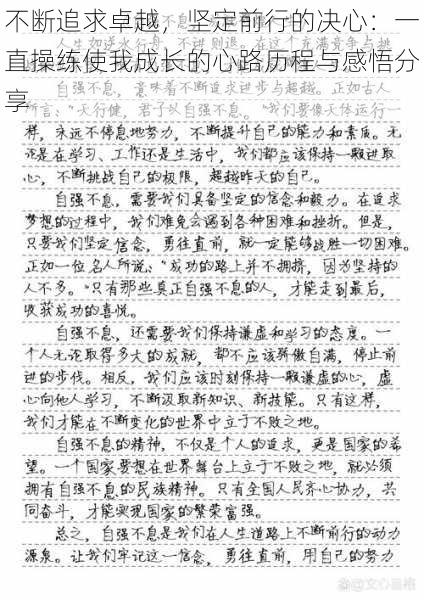 不断追求卓越，坚定前行的决心：一
直操练使我成长的心路历程与感悟分
享
人生如逆水行舟，不进则退。在这个充满竞争与挑
自强不息，意味着不断追求进步与超越。正如古人
所言：“天行健，君子以自强不息。”我们要像天体运行一
样，永远不停息地努力，不断提升自己的能力和素质。无
论是在学习、工作还是生活中，我们都应该保持一颗进取
心，不断挑战自己的极限，超越昨天的自己。
自强不息，需要我们具备坚定的信念和毅力。在追求
梦想的过程中，我们难免会遇到各种困难和挫折。但是，
只要我们坚定信念，勇往直前，就一定能够战胜一切困难。
正如一位名人所说：“成功的路上并不拥挤，因为坚持的
人不多。”只有那些真正自强不息的人，才能走到最后，
收获成功的喜悦。
自强不息，还需要我们保持谦虚和学习的态度。一
个人无论取得多大的成就，都不应该骄傲自满，停止前
进的步伐。相反，我们应该时刻保持一颗谦虚的心，虚
心向他人学习，不断汲取新知识、新技能。只有这样，
我们才能在不断变化的世界中立于不败之地。
自强不息的精神，不仅是个人的追求，更是国家的希
望。一个国家要想在世界舞台上立于不败之地，就必须
拥有自强不息的民族精神。只有全国人民齐心协力，共
同奋斗，才能实现国家的繁荣富强。
总之，自强不息是我们在人生道路上不断前行的动力
源泉。让我们牢记这一信念，勇往直前，用自己的努力